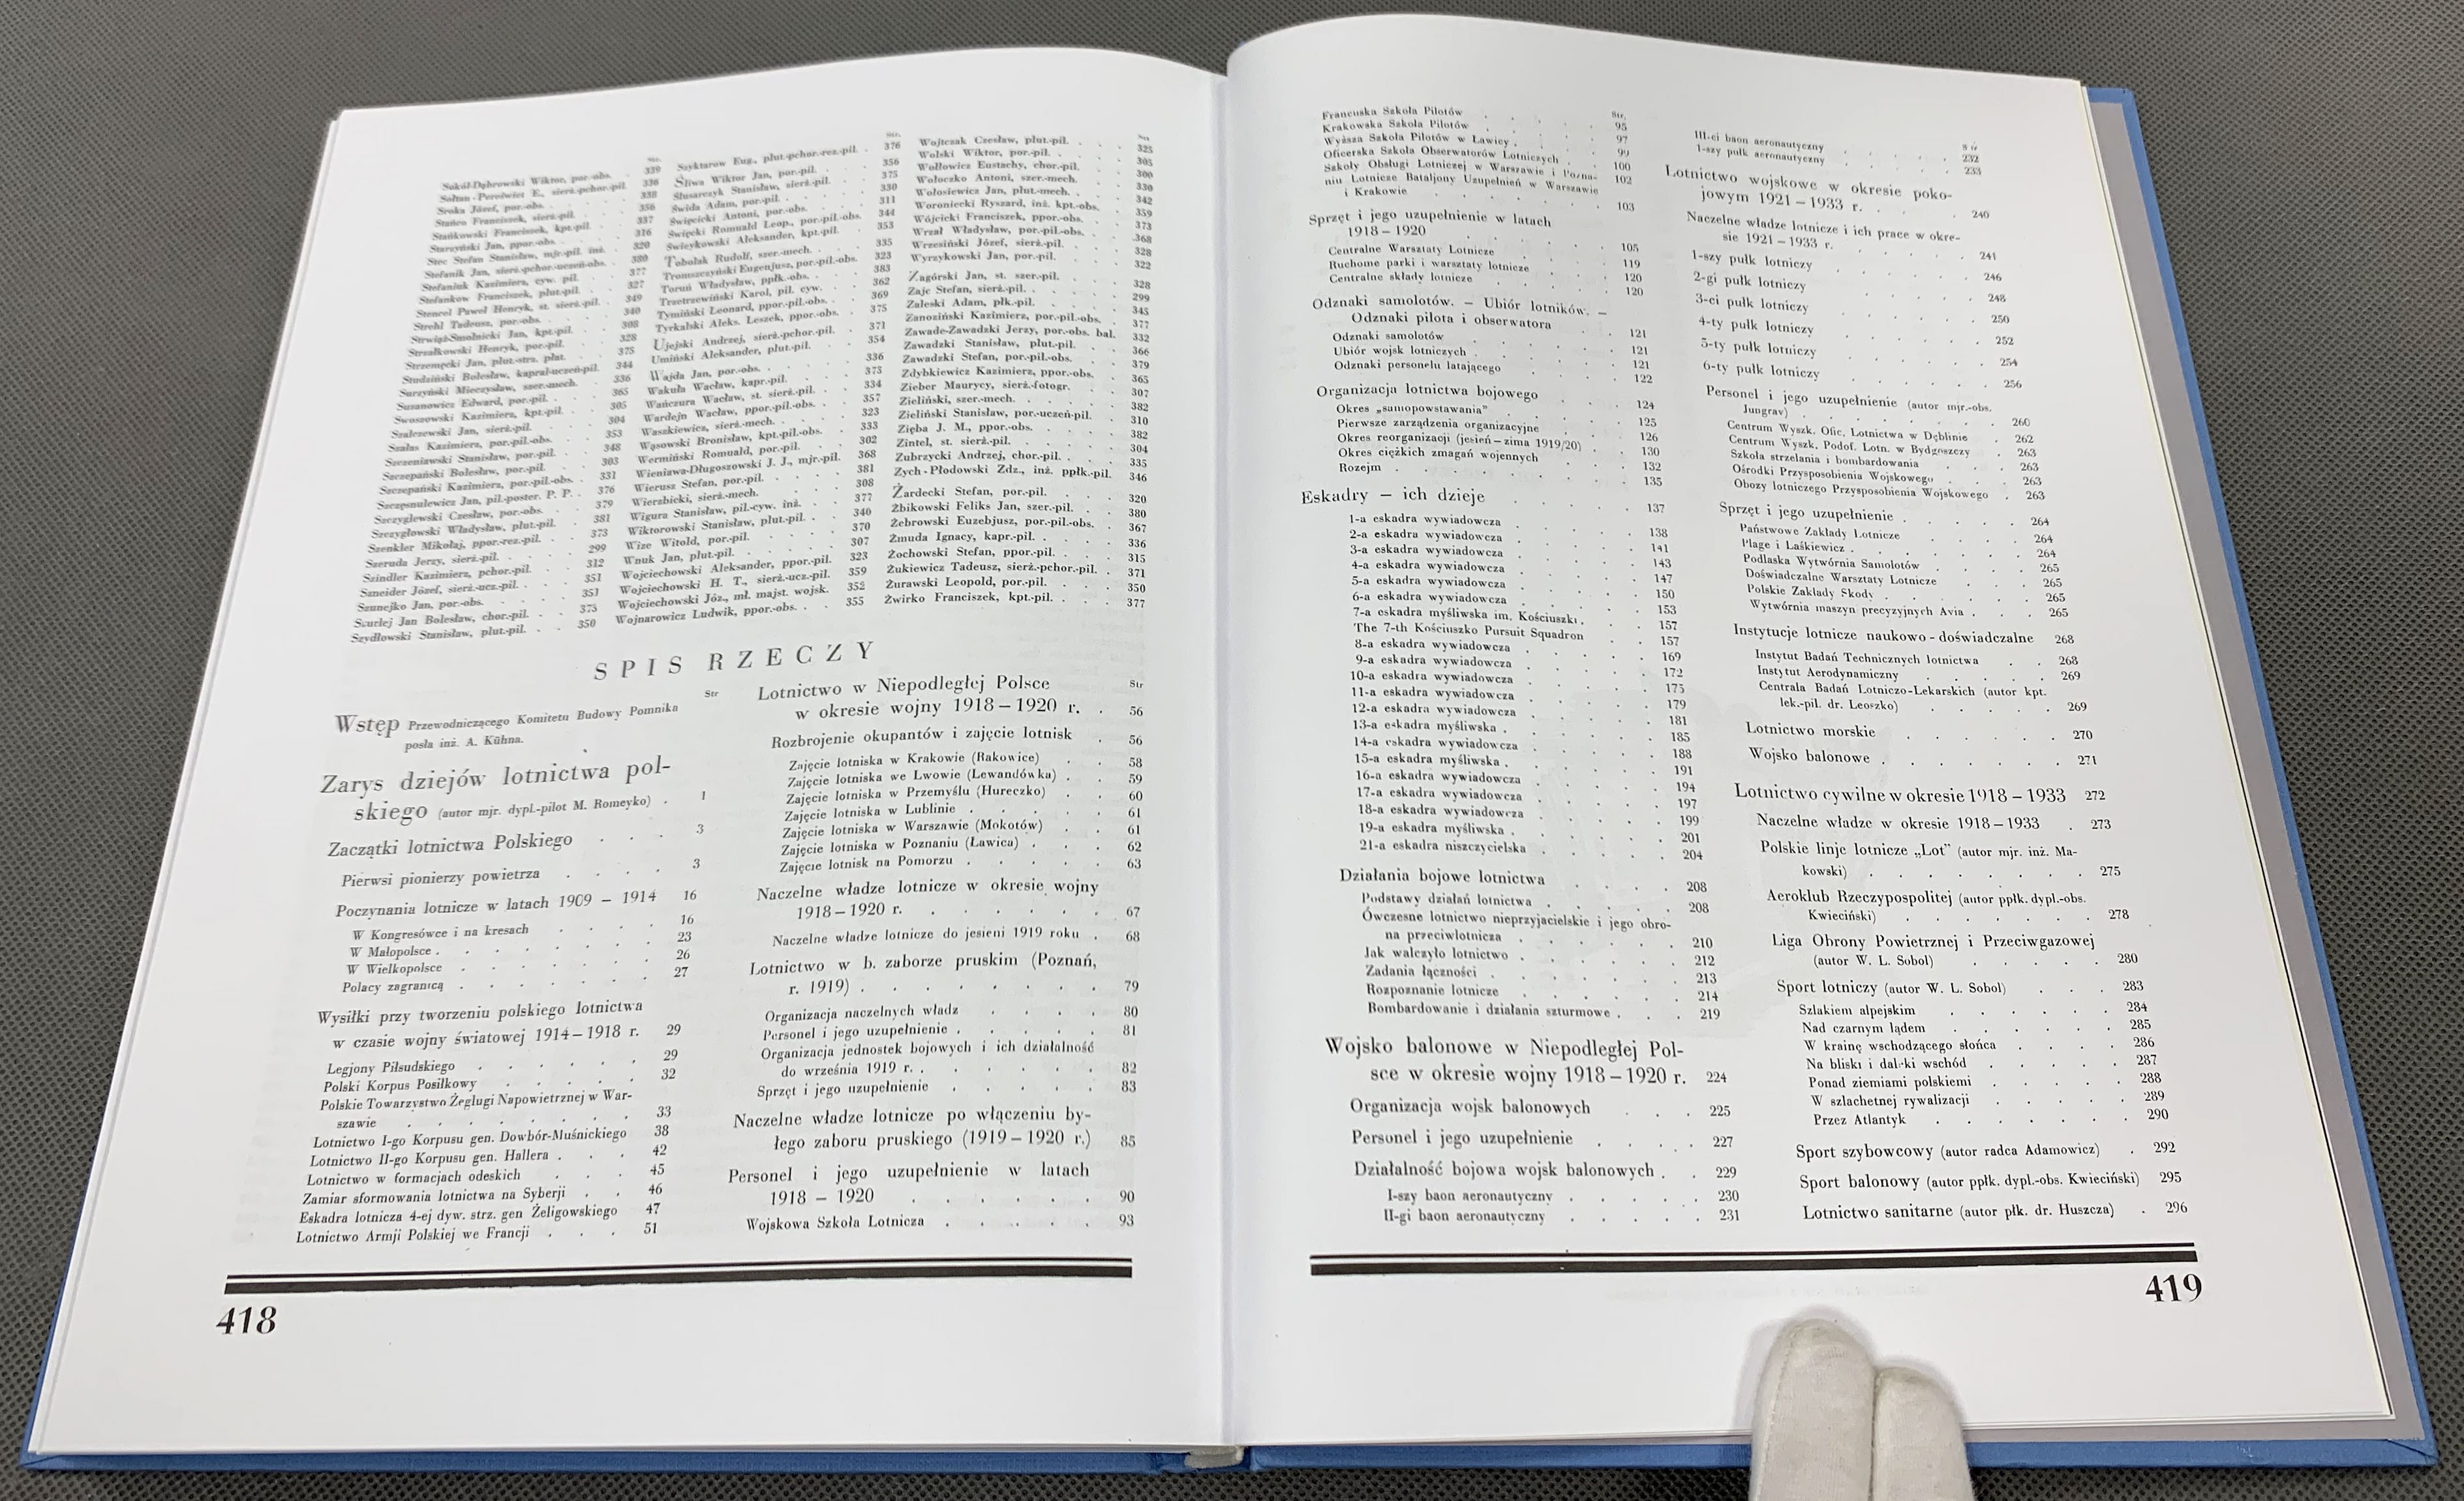 Str.
Sokół-Dąbrowski Wiktor, por.-obs. . 339
Sołtan-Pereświet E., sierż.-pchor.-pil. 336
Sroka Józef, por.-obs. . 338
Stańco Franciszek, sierż.-pil. . 356
Stańkowski Franciszek, kpt.-pil. . 337
Starzyński Jan, ppor.-obs. . 316
Stec Stefan Stanisław, mjr.-pil. inż. . 320
Stefanik Jan, sierż.-pchor.-uczeń-obs. . 380
Stefaniuk Kazimierz, cyw. pil. . 377
Stefankow Franciszek, plut.-pil. . 327
Stencel Paweł Henryk, st. sierż.-pil. . 349
Strehl Tadeusz, por.-obs. . 340
Strwiąż-Smolnicki Jan, kpt.-pil. . 308
Strzałkowski Henryk, por.-pil. . 328
Strzemęcki Jan, plut.-strz. płat. . 375
Studziński Bolesław, kapral-uczeń-pil. . 344
Surzyński Mieczysław, szer.-mech. . 336
Suzanowicz Edward, por.-pil. . 365
Swoszowski Kazimierz, kpt.-pil. . 305
Szalczewski Jan, sierż.-pil. . 304
Szałas Kazimierz, por.-pil.-obs. . 353
Szczeniawski Stanisław, por.-pil. . 348
Szczepański Bolesław, por.-pil. . 303
Szczepański Kazimierz, por.-pil.-obs. . 331
Szczęsnulewicz Jan, pil.-poster. P. P. . 376
Szczyglewski Czesław, por.-obs. . 379
Szczygłowski Władysław, plut.-pil. . 381
Szenkler Mikołaj, ppor.-rez.-pil. . 373
Szeruda Jerzy, sierż.-pil. . 299
Szindler Kazimierz, pchor.-pil. . 312
Szneider Józef, sierż.-ucz.-pil. . 351
Szunejko Jan, por.-obs. . 351
Szurlej Jan Bolesław, chor.-pil. . 375
Szydłowski Stanisław, plut.-pil. . 350
Str.
Szyktarow Eug., plut.-pchor.-rez.-pil. . 376
Śliwa Wiktor Jan, por.-pil. . 356
Ślusarczyk Stanisław, sierż.-pil. . 375
Świda Adam, por.-pil. . 330
Święcicki Antoni, por.-obs. . 311
Święcki Romuald Leop., por.-pil.-obs. 344
Świeykowski Aleksander, kpt.-pil. . 353
Tobolak Rudolf, szer.-mech. . 335
Tromszczyński Eugenjusz, por.-pil.-obs. 323
Toruń Władysław, ppłk.-obs. . 383
Trzetrzewiński Karol, pil. cyw. . 362
Tymiński Leonard, ppor.-pil.-obs. . 369
Tyrkalski Aleks. Leszek, ppor.-obs. . 375
Ujejski Andrzej, sierż.-pchor.-pil. . 371
Umiński Aleksander, plut.-pil. . 354
Wajda Jan, por.-obs. . 336
Wakuła Wacław, kapr.-pil. . 373
Wańczura Wacław, st. sierż.-pil. . 334
Wardejn Wacław, ppor.-pil.-obs. . 357
Waszkiewicz, sierż.-mech. . 323
Wąsowski Bronisław, kpt.-pil.-obs. . 333
Wermiński Romuald, por.-pil. . 302
Wieniawa-Długoszowski J. J., mjr.-pil. 368
Wierusz Stefan, por.-pil. . 381
Wierzbicki, sierż.-mech. . 308
Wigura Stanisław, pil.-cyw. inż. . 377
Wiktorowski Stanisław, plut.-pil. . 340
Wize Witold, por.-pil. . 370
Wnuk Jan, plut.-pil. . 307
Wojciechowski Aleksander, ppor.-pil. 323
Wojciechowski H. T., sierż.-ucz.-pil. 359
Wojciechowski Józ., mł. majst. wojsk. 352
Wojnarowicz Ludwik, ppor.-obs. . . 355
Wojtczak Czesław, plut.-pil. . . . 325
Wolski Wiktor, por.-pil. . . . . 305
Wołłowicz Eustachy, chor.-pil. . . . 300
Wołoczko Antoni, szer.-mech. . . . 330
Wołosiewicz Jan, plut.-mech. . . . 342
Woroniecki Ryszard, inż. kpt.-obs. . 359
Wójcicki Franciszek, ppor.-obs. . . 373
Wrzał Władysław, por.-pil.-obs. . . 368
Wrzesiński Józef, sierż.-pil. . . . 328
Wyrzykowski Jan, por.-pil. . . . 322
Zagórski Jan, st. szer.-pil. . . . 328
Zajc Stefan, sierż.-pil. . . . . 299
Zaleski Adam, płk.-pil. . . . . 345
Zanoziński Kazimierz, por.-pil.-obs. . 377
Zawade-Zawadzki Jerzy, por.-obs. bal. 332
Zawadzki Stanisław, plut.-pil. . . 366
Zawadzki Stefan, por.-pil.-obs. . . 379
Zdybkiewicz Kazimierz, ppor.-obs. . 365
Zieber Maurycy, sierż.-fotogr. . . 307
Zieliński, szer.-mech. . . . . 382
Zieliński Stanisław, por.-uczeń-pil. . 310
Zięba J. M., ppor.-obs. . . . . 382
Zintel, st. sierż.-pil. . . . . 304
Zubrzycki Andrzej, chor.-pil. . . . 335
Zych-Płodowski Zdz., inż. ppłk.-pil. 346
Żardecki Stefan, por.-pil. . . . 320
Żbikowski Feliks Jan, szer.-pil. . . 380
Żebrowski Euzebjusz, por.-pil.-obs. . 367
Żmuda Ignacy, kapr.-pil. . . . . 336
Żochowski Stefan, ppor.-pil. . . . 315
Żukiewicz Tadeusz, sierż.-pchor.-pil. . 371
Żurawski Leopold, por.-pil. . . . 350
Żwirko Franciszek, kpt.-pil. . . . 377
SPIS RZECZY
Str
Wstęp Przewodniczącego Komitetu Budowy Pomnika
posła inż. A. Kühna.
Zarys dziejów lotnictwa pol-
skiego (autor mjr. dypl.-pilot M. Romeyko) . 1
Zaczątki lotnictwa Polskiego . . . 3
Pierwsi pionierzy powietrza . . . . 3
Poczynania lotnicze w latach 1909 – 1914 16
W Kongresówce i na kresach . . . . 16
W Małopolsce . . . . . . . 23
W Wielkopolsce . . . . . . 26
Polacy zagranicą . . . . . . 27
Wysiłki przy tworzeniu polskiego lotnictwa
w czasie wojny światowej 1914–1918 r. 29
Legjony Piłsudskiego . . . . . . 29
Polski Korpus Posiłkowy . . . . . 32
Polskie Towarzystwo Żeglugi Napowietrznej w War-
szawie . . . . . . . 33
Lotnictwo I-go Korpusu gen. Dowbór-Muśnickiego 38
Lotnictwo II-go Korpusu gen. Hallera . . . 42
Lotnictwo w formacjach odeskich . . . 45
Zamiar sformowania lotnictwa na Syberji . . 46
Eskadra lotnicza 4-ej dyw. strz. gen Żeligowskiego 47
Lotnictwo Armji Polskiej we Francji . . . 51
Str
Lotnictwo w Niepodległej Polsce
w okresie wojny 1918–1920 r. . 56
Rozbrojenie okupantów i zajęcie lotnisk . 56
Zajęcie lotniska w Krakowie (Rakowice) . . 58
Zajęcie lotniska we Lwowie (Lewandówka) . . 59
Zajęcie lotniska w Przemyślu (Hureczko) . . 60
Zajęcie lotniska w Lublinie . . . . . 61
Zajęcie lotniska w Warszawie (Mokotów) . . 61
Zajęcie lotniska w Poznaniu (Ławica) . . . 62
Zajęcie lotnisk na Pomorzu . . . . . 63
Naczelne władze lotnicze w okresie wojny
1918–1920 r. . . . . . . 67
Naczelne władze lotnicze do jesieni 1919 roku . 68
Lotnictwo w b. zaborze pruskim (Poznań,
r. 1919) . . . . . . . . 79
Organizacja naczelnych władz . . . . 80
Personel i jego uzupełnienie . . . . . 81
Organizacja jednostek bojowych i ich działalność
do września 1919 r. . . . . . . 82
Sprzęt i jego uzupełnienie . . . . . 83
Naczelne władze lotnicze po włączeniu by-
łego zaboru pruskiego (1919–1920 r.) 85
Personel i jego uzupełnienie w latach
1918 – 1920 . . . . . . 90
Wojskowa Szkoła Lotnicza . . . . . 93
418
Str.
Francuska Szkoła Pilotów . . . . . 95
Krakowska Szkoła Pilotów . . . . . 97
Wyższa Szkoła Pilotów w Ławicy . . . . 99
Oficerska Szkoła Obserwatorów Lotniczych . . 100
Szkoły Obsługi Lotniczej w Warszawie i Pozna- 102
niu Lotnicze Bataljony Uzupełnień w Warszawie
i Krakowie . . . . . . 103
Sprzęt i jego uzupełnienie w latach
1918–1920 . . . . . . 105
Centralne Warsztaty Lotnicze . . . . 119
Ruchome parki i warsztaty lotnicze . . . 120
Centralne składy lotnicze . . . . . 120
Odznaki samolotów. – Ubiór lotników. –
Odznaki pilota i obserwatora . . 121
Odznaki samolotów . . . . . . 121
Ubiór wojsk lotniczych . . . . . 121
Odznaki personelu latającego . . . . 122
Organizacja lotnictwa bojowego . . . 124
Okres „samopowstawania” . . . . . 125
Pierwsze zarządzenia organizacyjne . . . 126
Okres reorganizacji (jesień–zima 1919/20) . . 130
Okres ciężkich zmagań wojennych . . . 132
Rozejm . . . . . . . . 135
Eskadry – ich dzieje . . . . 137
1-a eskadra wywiadowcza . . . . 138
2-a eskadra wywiadowcza . . . . 141
3-a eskadra wywiadowcza . . . . 143
4-a eskadra wywiadowcza . . . . 147
5-a eskadra wywiadowcza . . . . 150
6-a eskadra wywiadowcza . . . . 153
7-a eskadra myśliwska im. Kościuszki . . . 157
The 7-th Kościuszko Pursuit Squadron . . 157
8-a eskadra wywiadowcza . . . . 169
9-a eskadra wywiadowcza . . . . 172
10-a eskadra wywiadowcza . . . . 175
11-a eskadra wywiadowcza . . . . 179
12-a eskadra wywiadowcza . . . . 181
13-a eskadra myśliwska . . . . . 185
14-a eskadra wywiadowcza . . . . 188
15-a eskadra myśliwska . . . . . 191
16-a eskadra wywiadowcza . . . . 194
17-a eskadra wywiadowcza . . . . 197
18-a eskadra wywiadowcza . . . . 199
19-a eskadra myśliwska . . . . . 201
21-a eskadra niszczycielska . . . . 204
Działania bojowe lotnictwa . . . . 208
Podstawy działań lotnictwa . . . . 208
Ówczesne lotnictwo nieprzyjacielskie i jego obro-
na przeciwlotnicza . . . . . 210
Jak walczyło lotnictwo . . . . . 212
Zadania łączności . . . . . . 213
Rozpoznanie lotnicze . . . . . 214
Bombardowanie i działania szturmowe . . . 219
Wojsko balonowe w Niepodległej Pol-
sce w okresie wojny 1918–1920 r. 224
Organizacja wojsk balonowych . . . 225
Personel i jego uzupełnienie . . . . 227
Działalność bojowa wojsk balonowych . . 229
I-szy baon aeronautyczny . . . . . 230
II-gi baon aeronautyczny . . . . . 231
III-ci baon aeronautyczny . . . . 232
1-szy pułk aeronautyczny . . . . 233
Lotnictwo wojskowe w okresie poko-
jowym 1921–1933 r. . . . 240
Naczelne władze lotnicze i ich prace w okre-
sie 1921–1933 r. . . . . 241
1-szy pułk lotniczy . . . . . 246
2-gi pułk lotniczy . . . . . 248
3-ci pułk lotniczy . . . . . 250
4-ty pułk lotniczy . . . . . 252
5-ty pułk lotniczy . . . . . 254
6-ty pułk lotniczy . . . . . 256
Personel i jego uzupełnienie (autor mjr.-obs.
Jungrav) . . . . . . . 260
Centrum Wyszk. Ofic. Lotnictwa w Dęblinie . 262
Centrum Wyszk. Podof. Lotn. w Bydgoszczy . 263
Szkoła strzelania i bombardowania . . . 263
Ośrodki Przysposobienia Wojskowego . . . 263
Obozy lotniczego Przysposobienia Wojskowego . 263
Sprzęt i jego uzupełnienie . . . . . 264
Państwowe Zakłady Lotnicze . . . . 264
Plage i Laśkiewicz . . . . . . 264
Podlaska Wytwórnia Samolotów . . . . 265
Doświadczalne Warsztaty Lotnicze . . . 265
Polskie Zakłady Skody . . . . . . 265
Wytwórnia maszyn precyzyjnych Avia . . . 265
Instytucje lotnicze naukowo-doświadczalne 268
Instytut Badań Technicznych lotnictwa . . 268
Instytut Aerodynamiczny . . . . . 269
Centrala Badań Lotniczo-Lekarskich (autor kpt.
lek.-pil. dr. Leoszko) . . . . . 269
Lotnictwo morskie . . . . . . 270
Wojsko balonowe . . . . . . 271
Lotnictwo cywilne w okresie 1918–1933 272
Naczelne władze w okresie 1918–1933 . 273
Polskie linje lotnicze „Lot” (autor mjr. inż. Ma-
kowski) . . . . . . . 275
Aeroklub Rzeczypospolitej (autor ppłk. dypl.-obs.
Kwieciński) . . . . . . 278
Liga Obrony Powietrznej i Przeciwgazowej
(autor W. L. Sobol) . . . . . 280
Sport lotniczy (autor W. L. Sobol) . . . 283
Szlakiem alpejskim . . . . . . 284
Nad czarnym lądem . . . . . . 285
W krainę wschodzącego słońca . . . . 286
Na bliski i daleki wschód . . . . . 287
Ponad ziemiami polskiemi . . . . . 288
W szlachetnej rywalizacji . . . . . 289
Przez Atlantyk . . . . . . . 290
Sport szybowcowy (autor radca Adamowicz) . 292
Sport balonowy (autor ppłk. dypl.-obs. Kwieciński) 295
Lotnictwo sanitarne (autor płk. dr. Huszcza) . 296
419